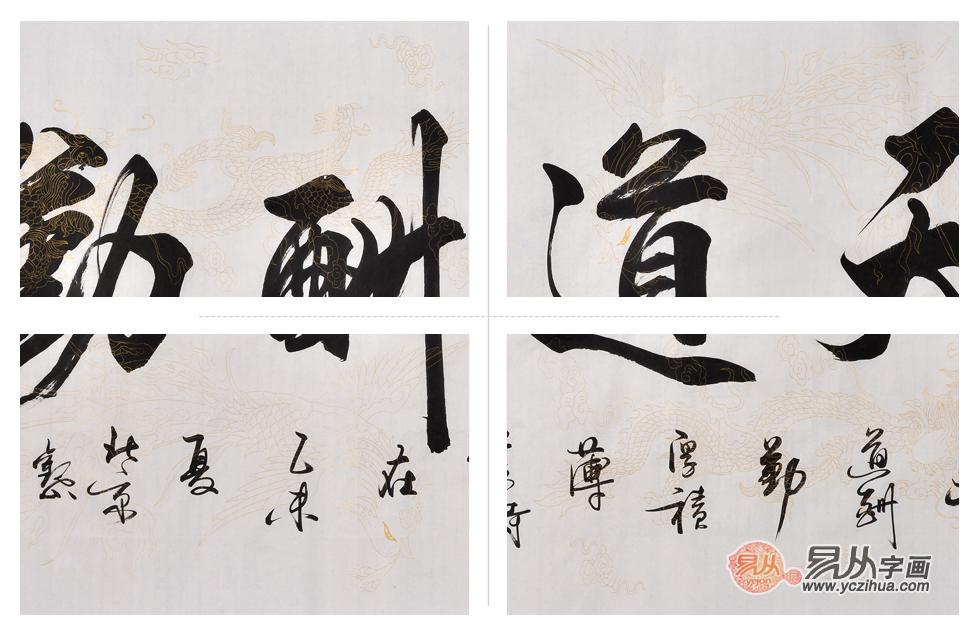 天道酬勤
道酬
勤
厚積
薄
在
乙未
夏
北京
易从
yejon
易从字画
www.yczihua.com